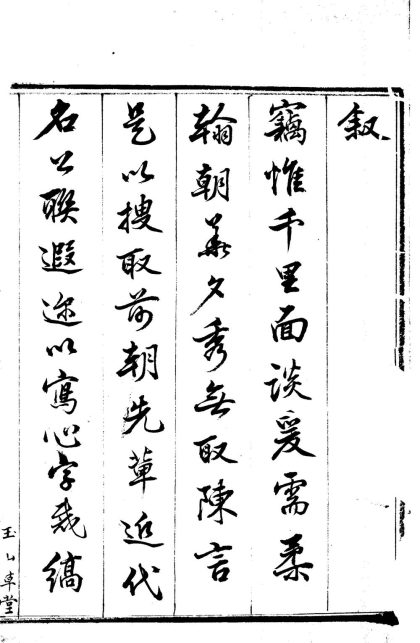 叙
竊惟千里面談爰需柔
翰朝華夕秀無取陳言
是以搜取前朝先輩近代
名公聯遐迩以寫心字裁縞
玉山草堂